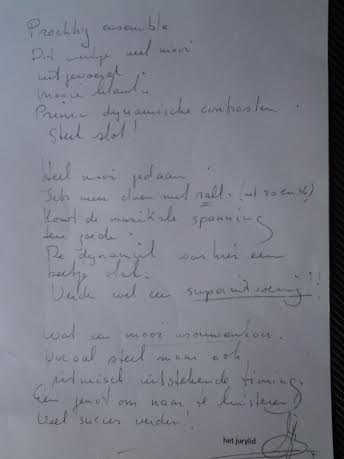 Prachtig ensemble
Dit werkje heel mooi
uitgevoerd.
mooie klank.
Prima dynamische contrasten.
Sterk slot!
Heel mooi gedaan
Iets meer doen met rall.
Komt de muzikale spanning
ten goede.
De dynamiek was hier een
beetje vlak.
Verder wel een superuitvoering!!
Wat een mooi vrouwenkoor.
Vocaal sterk maar ook
ritmisch uitstekende timing.
Een genot om naar te luisteren!
Veel succes verder!
het jurylid